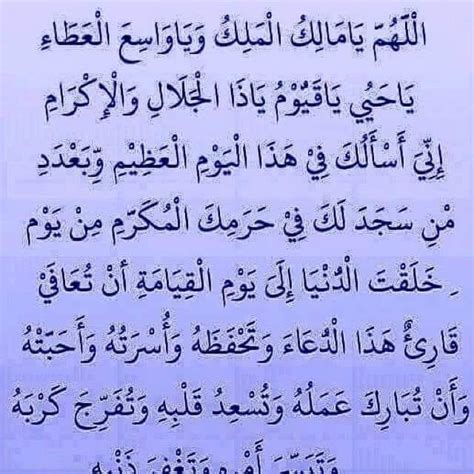 اللَّهُمّ يَامَالِكُ الْمَلِكُ وَيَاوَاسِعَ الْعَطَاءِ
يَاحَيُي يَاقَيُوْمُ يَاذَا الْجَلَالِ وَالْإِكْرَامِ
إِنِّيَ أَسْأَلُكَ فِيْ هَذَا الْيَوْمِ الْعَظِيْمِ وِّبَعْدَدِ
مْنِ سَجَدَ لَكَ فِيْ حَرَمِكَ الْمُكَرّمِ مِنْ يَوْمِ
خَلَقْتَ الْدُّنْيَا إِلَىَ يَوْمِ الْقِيَامَةِ أَنْ تُعَافَيْ
قَارِئٌ هَذَا الْدُّعَاءَ وَتَحْفَظَهُ وَأُسْرَتُهُ وَأَحَبّتْهُ
وَأَنْ تُبَارِكَ عَمَلُهُ وَتُسْعِدُ قَلْبِهِ وَتُفَرِّجَ كَرْبَهُ
وَتَيَسّرَ أَمْرِهِ وَتَغْفِرَ ذَنْبِهِ